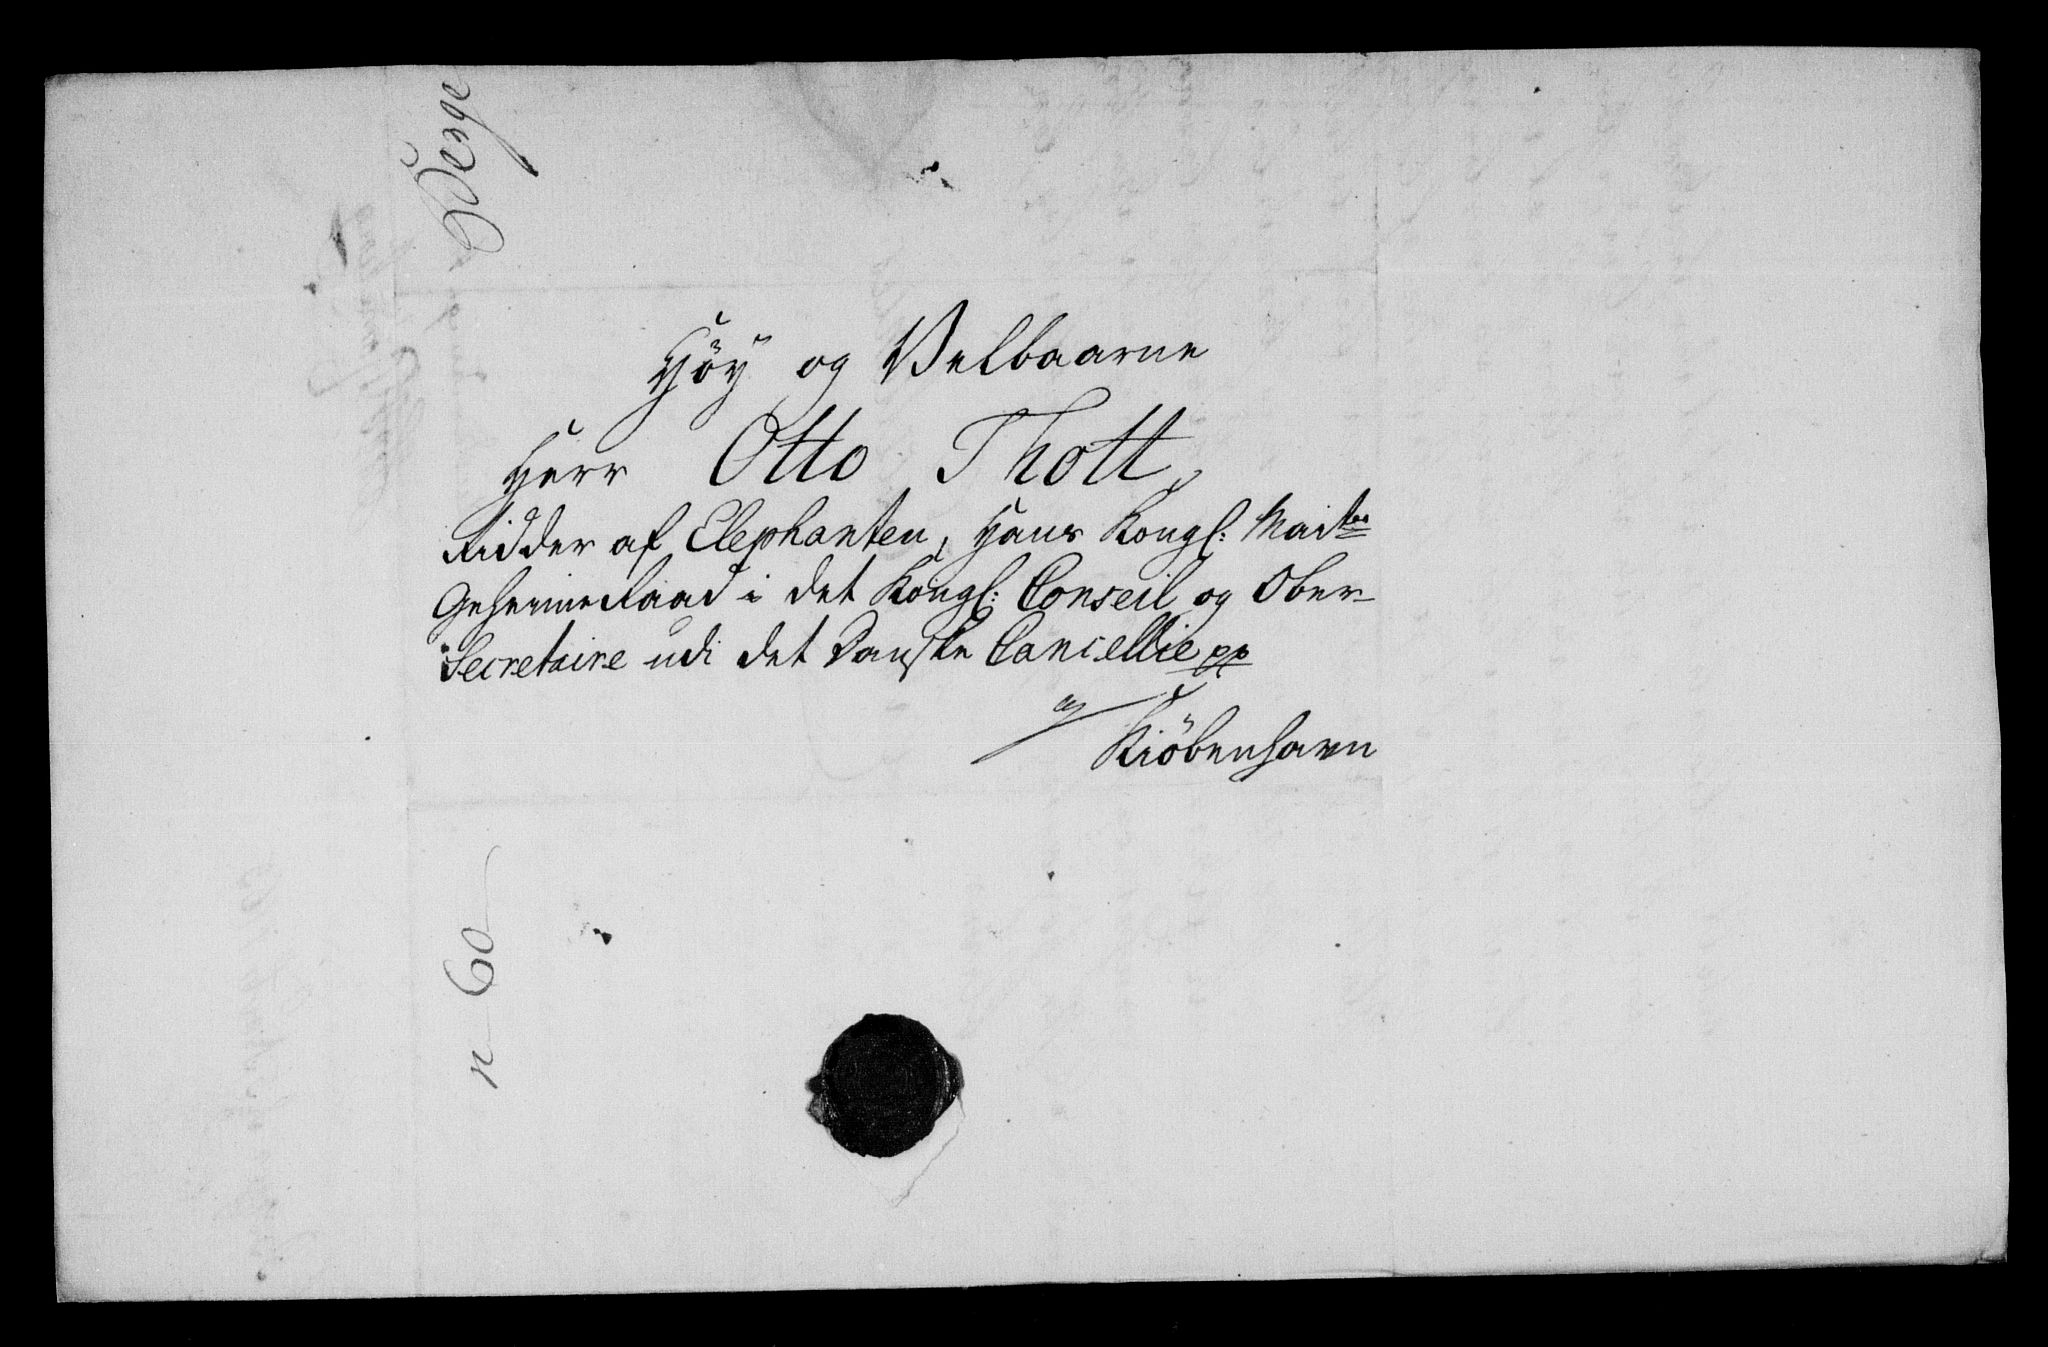 Høÿ og Velbaarne
Herr Otto Thott,
Ridder af Elephanten, Hans Kongl: Maits
Geheimeraad i det Kongl: Conseil og Ober-
Secretaire udi det Danske Cancellie pp
a/ Kiöbenhavn
n 60